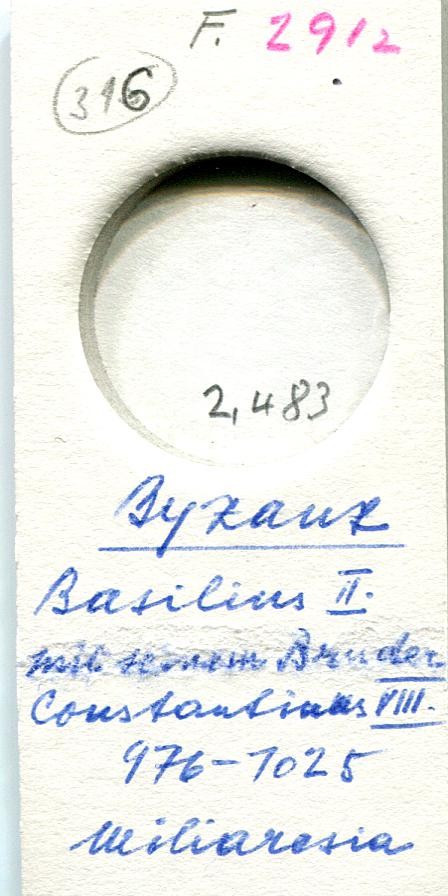 F. 2912
316
2,483
Byzanz
Basilius II.
mit seinem Bruder
Constantinus VIII.
976-1025
Miliaresia